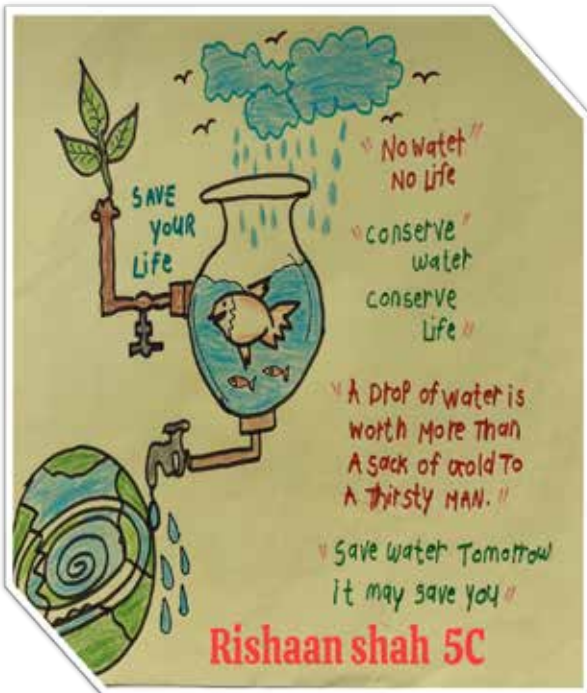 SAVE
YOUR
Life
"No water"
No Life
"conserve"
water
conserve
Life"
"A Drop of water is
worth More Than
A sack of Gold To
A Thirsty MAN."
"Save water Tomorrow
it may save you"
Rishaan shah 5C